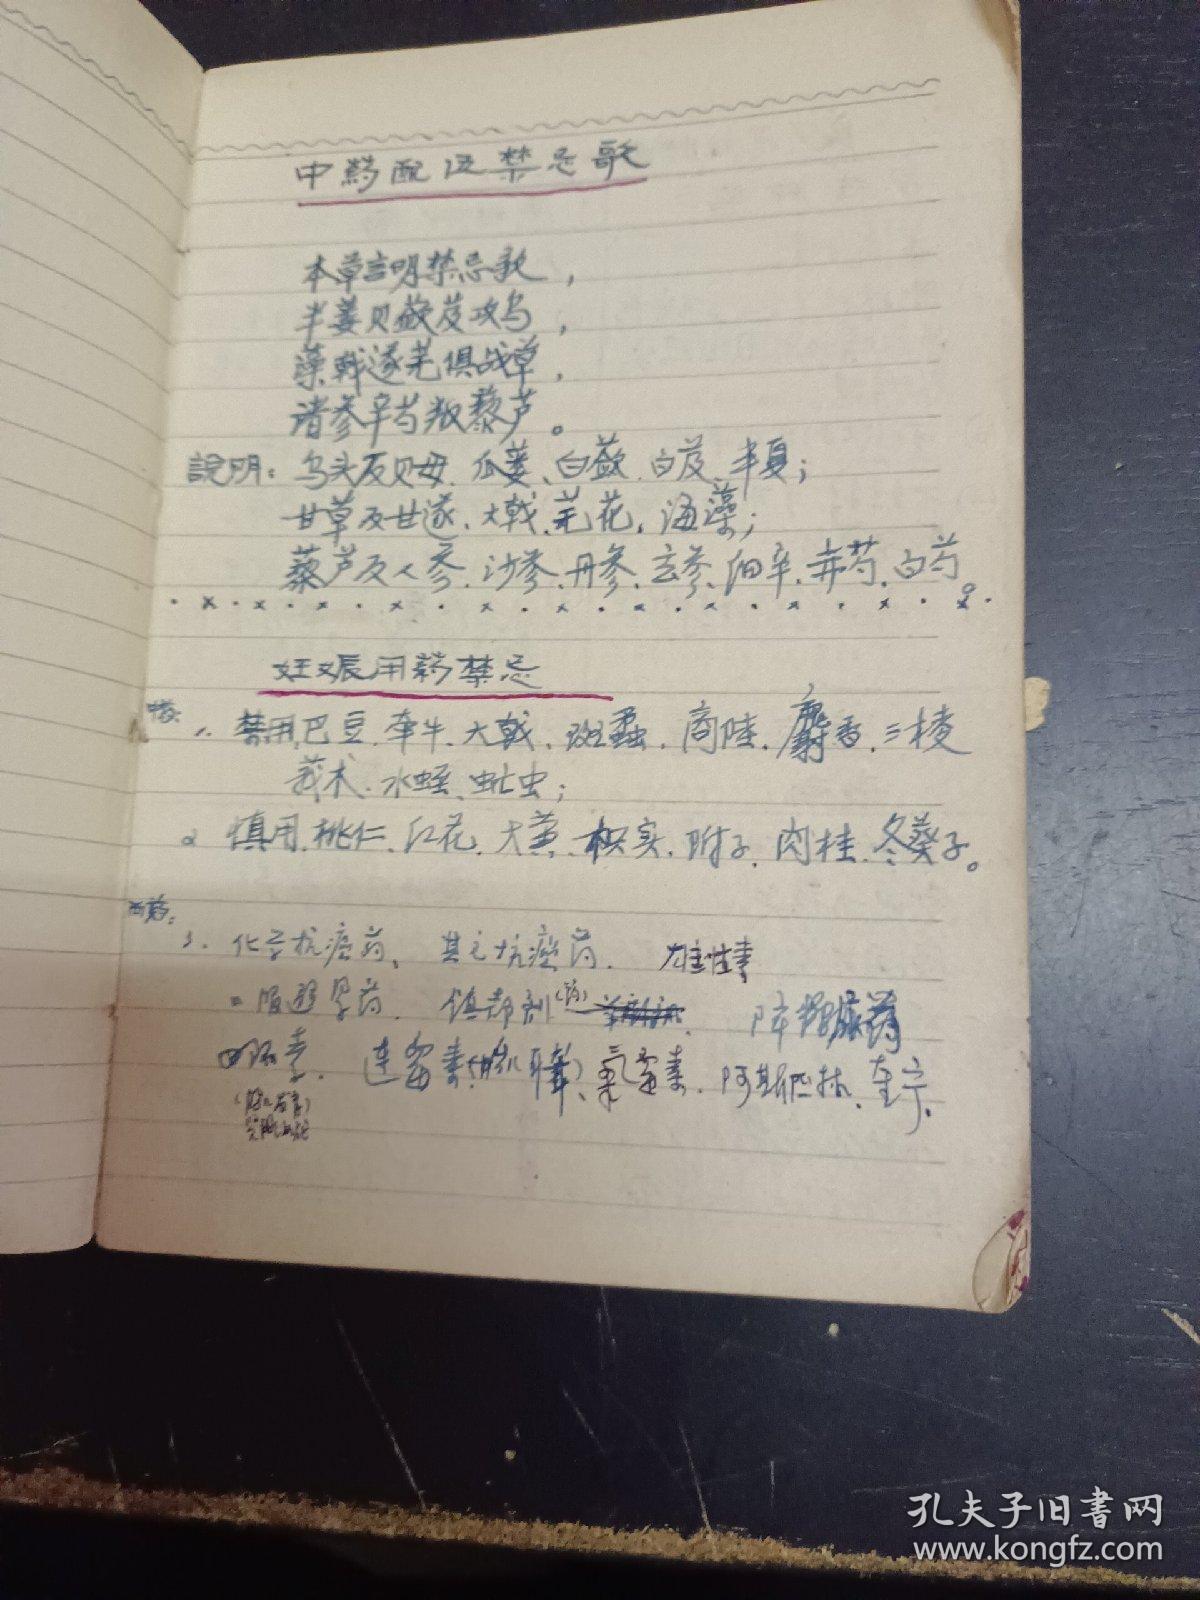 中药配伍禁忌歌
本草言明禁忌歌，
半蒌贝蔹芨攻乌，
藻戟遂芫俱战草，
诸参辛芍叛藜芦。
說明：乌头反贝母、瓜蒌、白蔹、白芨、半夏；
甘草反甘遂、大戟、芫花、海藻；
藜芦反人参、沙参、丹参、玄参、细辛、赤芍、白芍。
妊娠用药禁忌
中药：1. 禁用巴豆、牵牛、大戟、斑蝥、商陸、麝香、三棱
莪术、水蛭、虻虫；
2 慎用、桃仁、红花、大黄、枳实、附子、肉桂、冬葵子。
西药：
3. 化学抗疟药、其它抗癌药、雄性素
口服避孕药、镇静剂
四环素、连霉素、氯霉素、阿斯匹林、奎宁、
孔夫子旧书网
www.kongfz.com